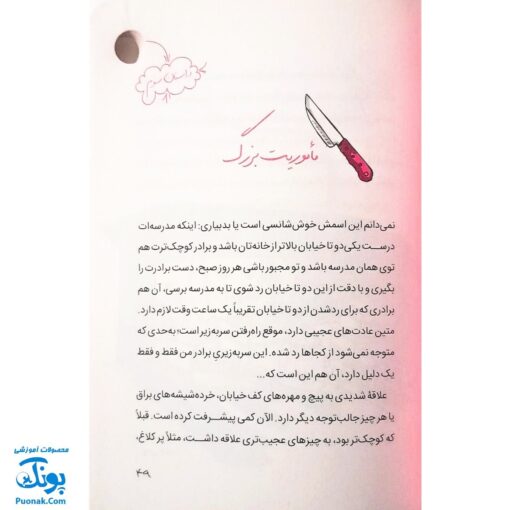 داستان سوم
مأموریت بزرگ
نمی‌دانم این اسمش خوش‌شانسی است یا بدبیاری: اینکه مدرسه‌ات
درست یکی‌دو تا خیابان بالاتر از خانه‌تان باشد و برادر کوچک‌ترت هم
توی همان مدرسه باشد و تو مجبور باشی هر روز صبح، دست برادرت را
بگیری و با دقت از این دو تا خیابان رد شوی تا به مدرسه برسی، آن هم
برادری که برای رد شدن از دو تا خیابان تقریباً یک ساعت وقت لازم دارد.
متین عادت‌های عجیبی دارد، موقع راه‌رفتن سربه‌زیر است؛ به‌حدی که
متوجه نمی‌شود از کجاها رد شده. این سربه‌زیریِ برادر من فقط و فقط
یک دلیل دارد، آن هم این است که...
علاقهٔ شدیدی به پیچ و مهره‌های کف خیابان، خرده‌شیشه‌های براق
یا هر چیز جالب‌توجه دیگر دارد. الآن کمی پیشرفت کرده است. قبلاً
که کوچک‌تر بود، به چیزهای عجیب‌تری علاقه داشت، مثلاً پر کلاغ،
۴۹
محصولات آموزشی
پونک
Puonak.Com